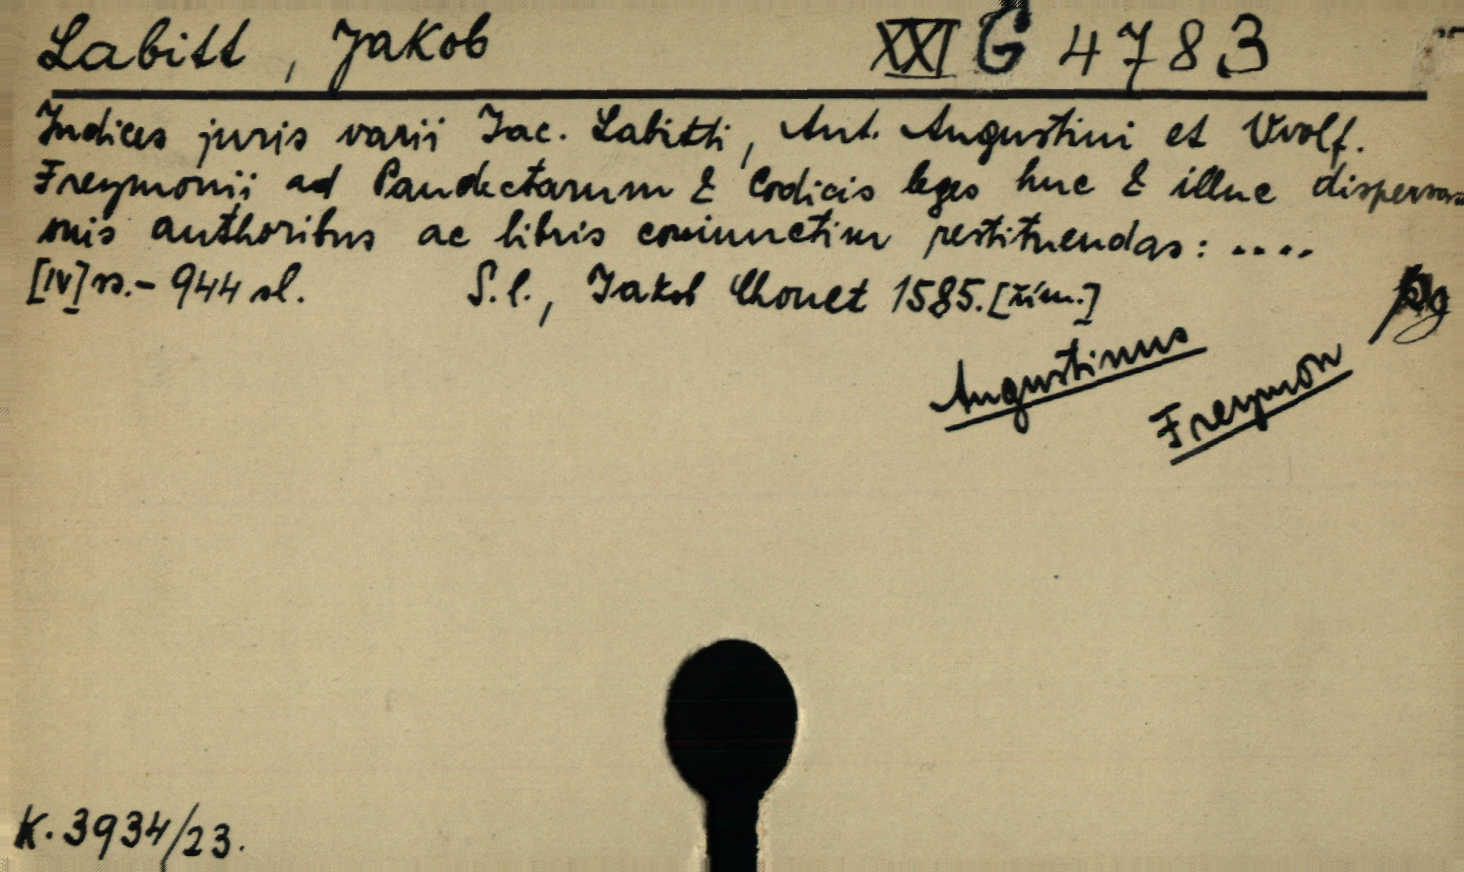 Labitt, Jakob XXI G 4783
Indices juris varii Iac. Labitti, Ant. Augustini et Vvolf.
Freymonii ad Pandectarum & Codicis leges huc & illuc dispersas
suis authoribus ac libris coniunctim restituendas: ....
[IV] ss. - 944 sl. S.l., Jakob Chouet 1585. [řím.]
Augustinus
Freymon
K. 3934/23.